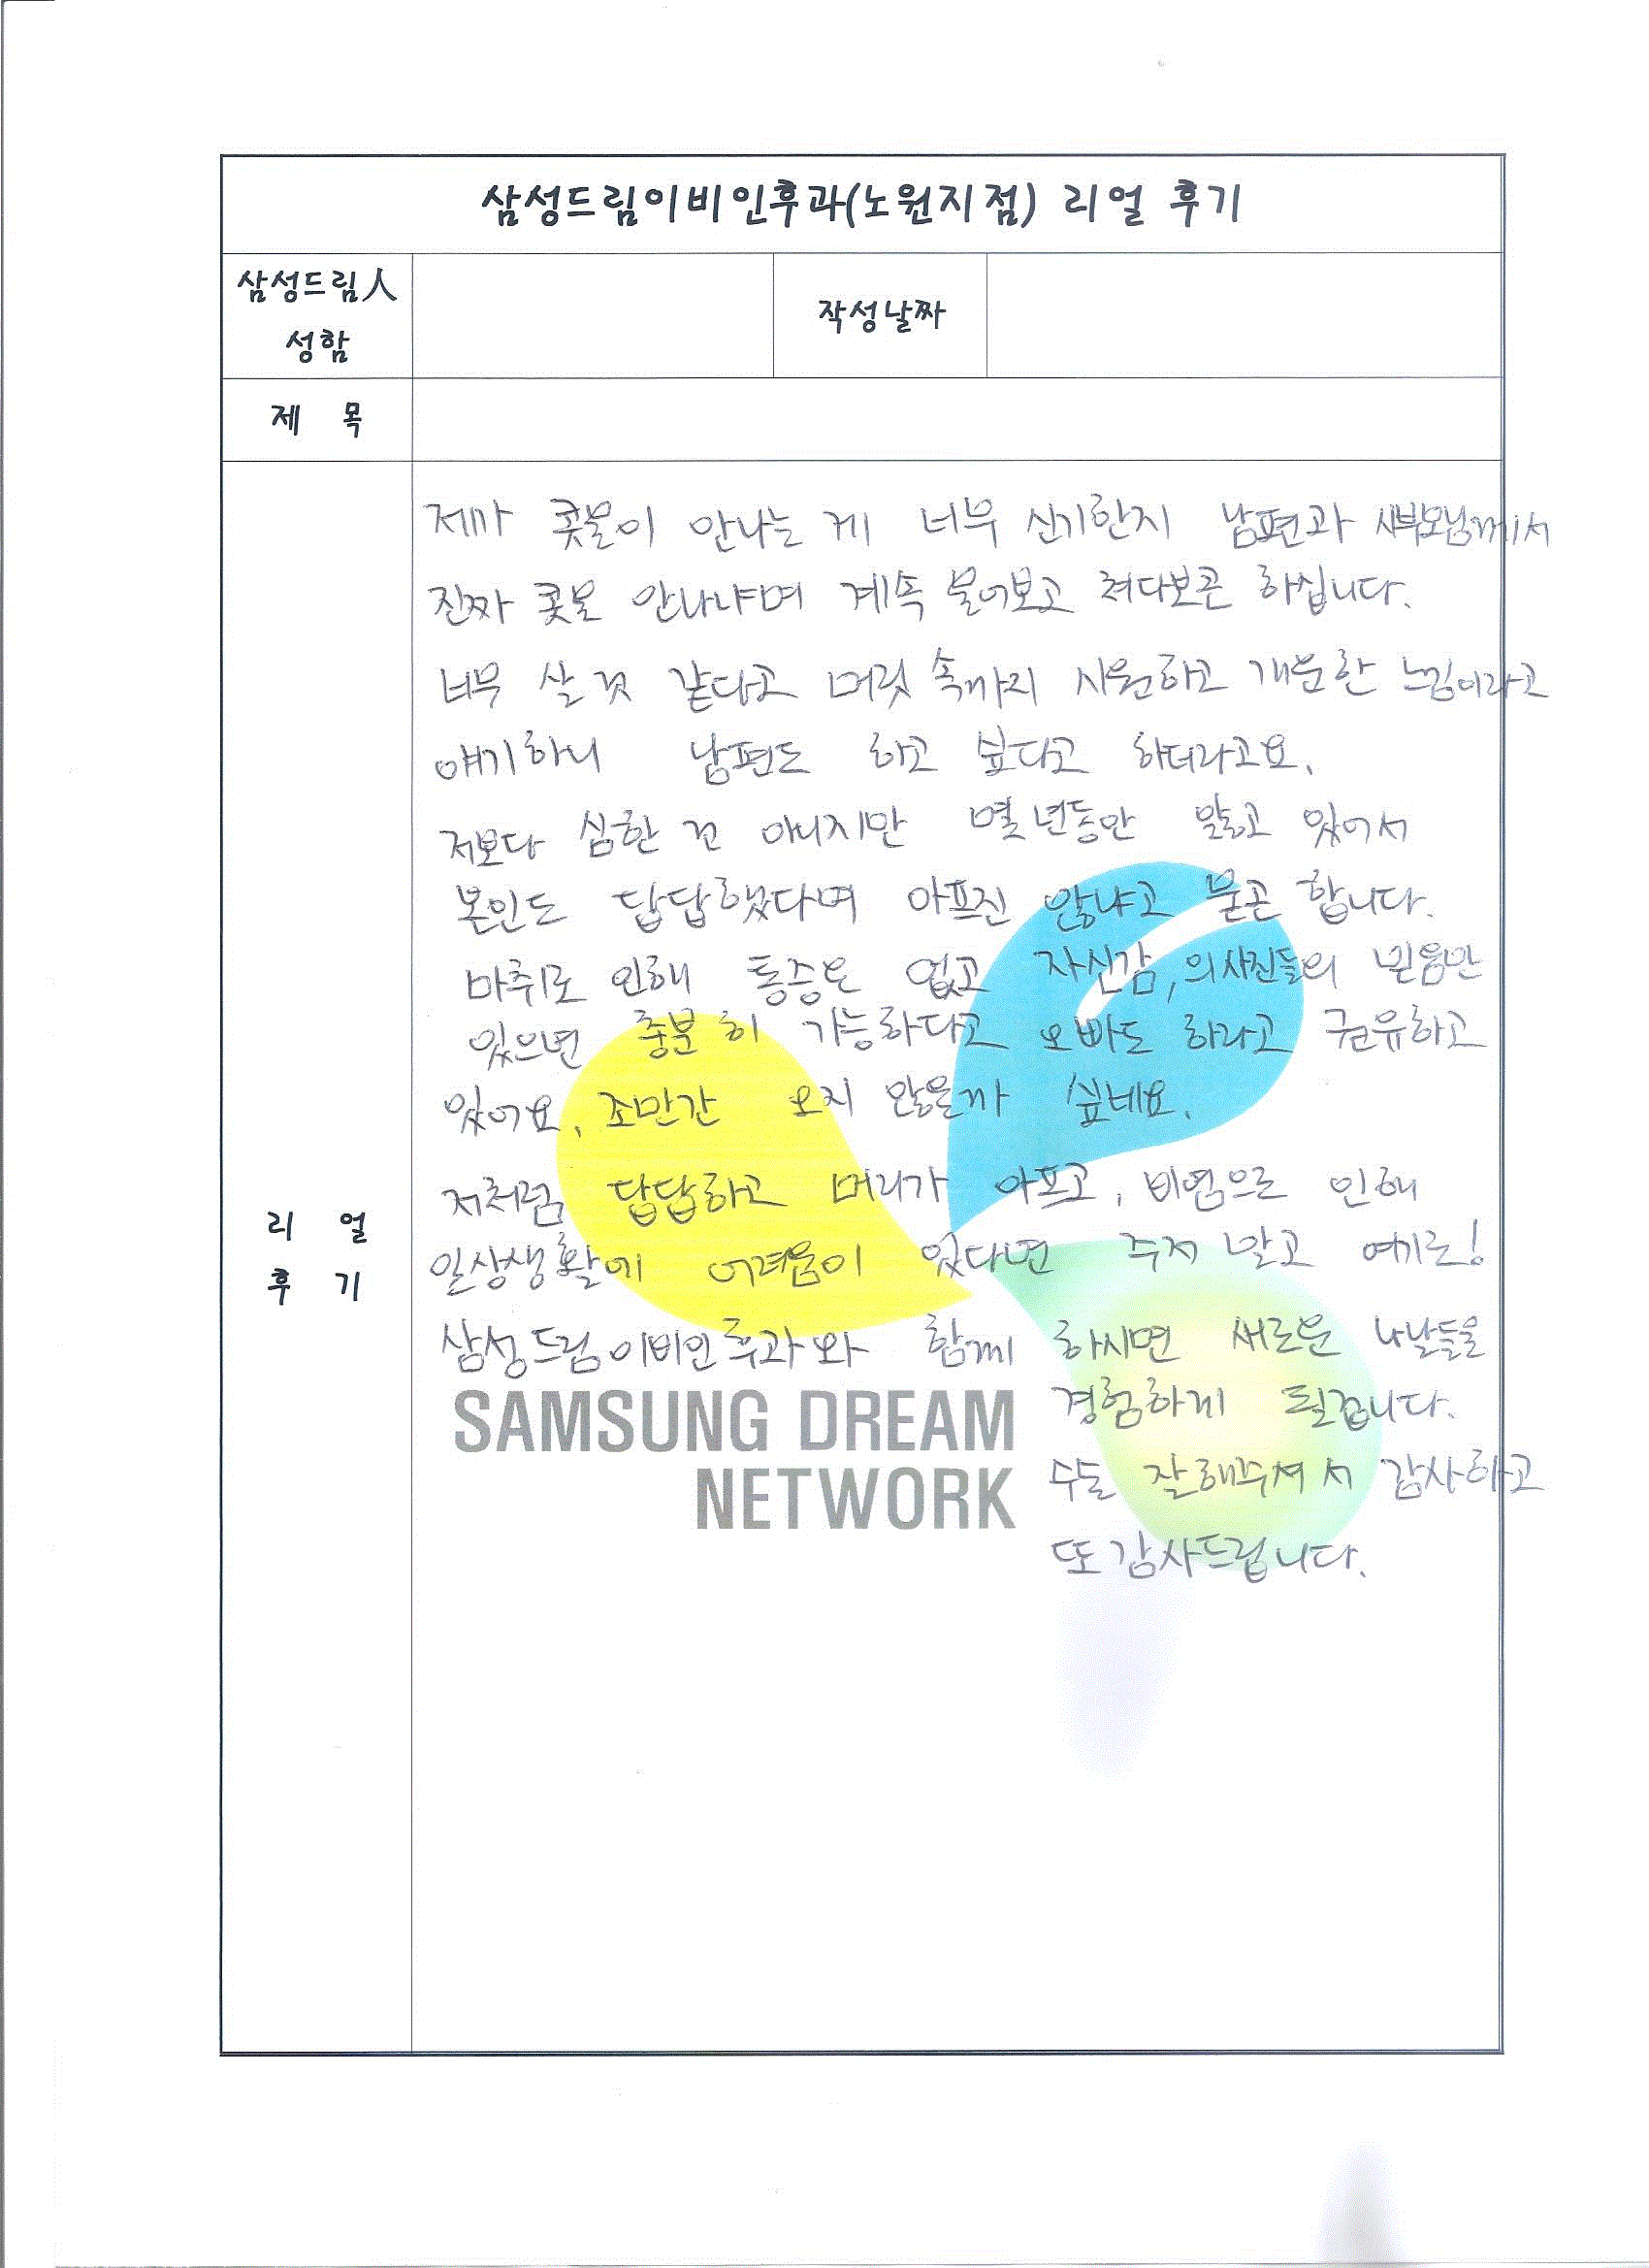 삼성드림이비인후과(노원지점) 리얼 후기
삼성드림人
성함
작성날짜
제 목
제가 콧물이 안나는 게 너무 신기한지 남편과 시부모님께서
진짜 콧물 안나냐며 계속 물어보고 쳐다보곤 하십니다.
너무 살 것 같다고 머릿 속까지 시원하고 개운한 느낌이라고
얘기하니 남편도 하고 싶다고 하더라고요.
저보다 심한 건 아니지만 몇 년동안 앓고 있어서
본인도 답답했다며 아프진 않냐고 묻곤 합니다.
마취로 인해 통증은 없고 자신감, 의사진들의 믿음만
있으면 충분히 가능하다고 오빠도 하라고 권유하고
있어요. 조만간 오지 않을까 싶네요.
저처럼 답답하고 머리가 아프고, 비염으로 인해
일상생활에 어려움이 있다면 주저 말고 여기로!
삼성드림이비인후과와 함께 하시면 새로운 나날들을
경험하게 될겁니다.
수술 잘해주셔서 감사하고
또 감사드립니다.
리 얼
후 기
SAMSUNG DREAM
NETWORK